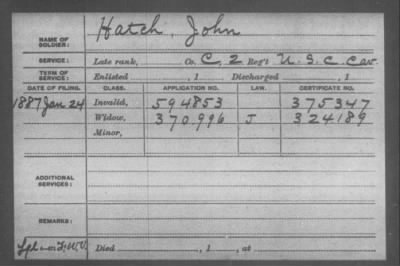 NAME OF SOLDIER: Hatch, John
SERVICE: Late rank, Co. C, 2 Reg't U. S. C. Cav.
TERM OF SERVICE: Enlisted , 1 Discharged , 1
DATE OF FILING. CLASS. APPLICATION NO. LAW. CERTIFICATE NO.
1887 Jan 24 Invalid, 594853 375347
Widow, 370.996 J 324189
Minor,
ADDITIONAL SERVICES:
REMARKS:
Died , 1 , at